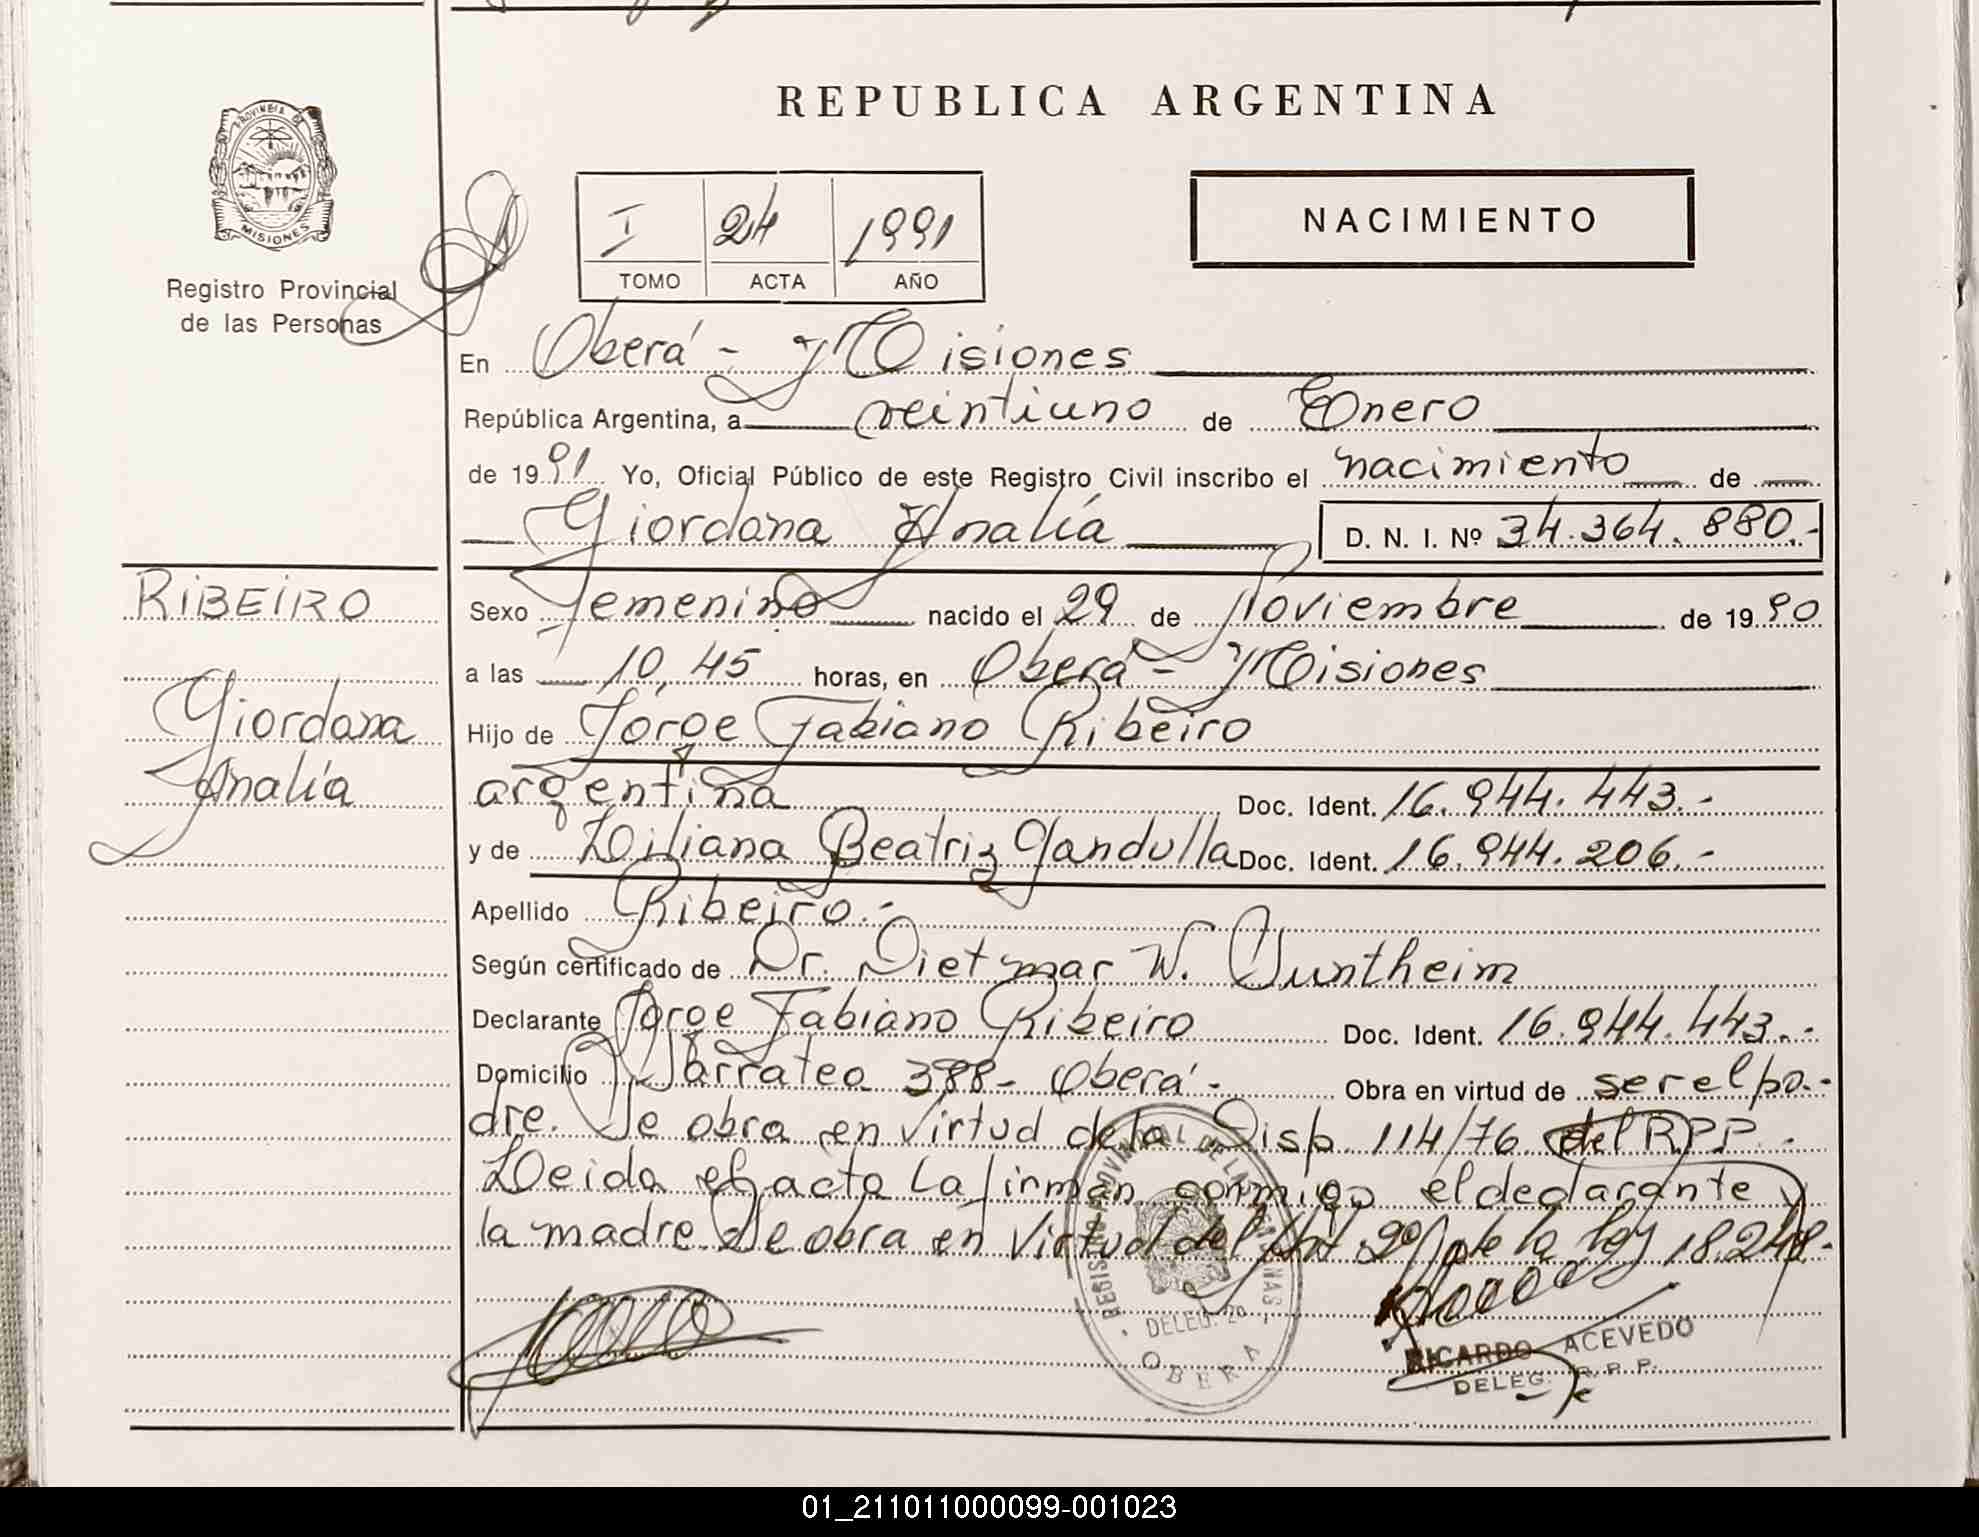 REPUBLICA ARGENTINA
PROVINCIA DE
MISIONES
Registro Provincial
de las Personas
I 24 1991
TOMO ACTA AÑO
NACIMIENTO
En Oberá - Misiones
República Argentina, a veintiuno de Enero
de 1991 Yo, Oficial Público de este Registro Civil inscribo el nacimiento de
Giordana Analía D. N. I. Nº 34.364.880.-
RIBEIRO
Giordana
Analía
Sexo Femenino nacido el 29 de Noviembre de 1990
a las 10,45 horas, en Oberá - Misiones
Hijo de Jorge Fabiano Ribeiro
argentina Doc. Ident. 16.944.443.-
y de Liliana Beatriz Gandulla Doc. Ident. 16.944.206.-
Apellido Ribeiro.-
Según certificado de Dr. Dietmar W. Guntheim
Declarante Jorge Fabiano Ribeiro Doc. Ident. 16.944.443.-
Domicilio Sarratea 388- Oberá- Obra en virtud de ser el pa-
dre. Se obra en virtud de la Disp. 114/76 del RPP.-
Leida el acta la firman conmigo el declarante y
la madre. Se obra en virtud del Art. 2º de la ley 18.248.-
REGISTRO PROVINCIAL DE LAS PERSONAS
DELEG. 20
OBERA
RICARDO ACEVEDO
DELEG. R.P.P.
01_211011000099-001023